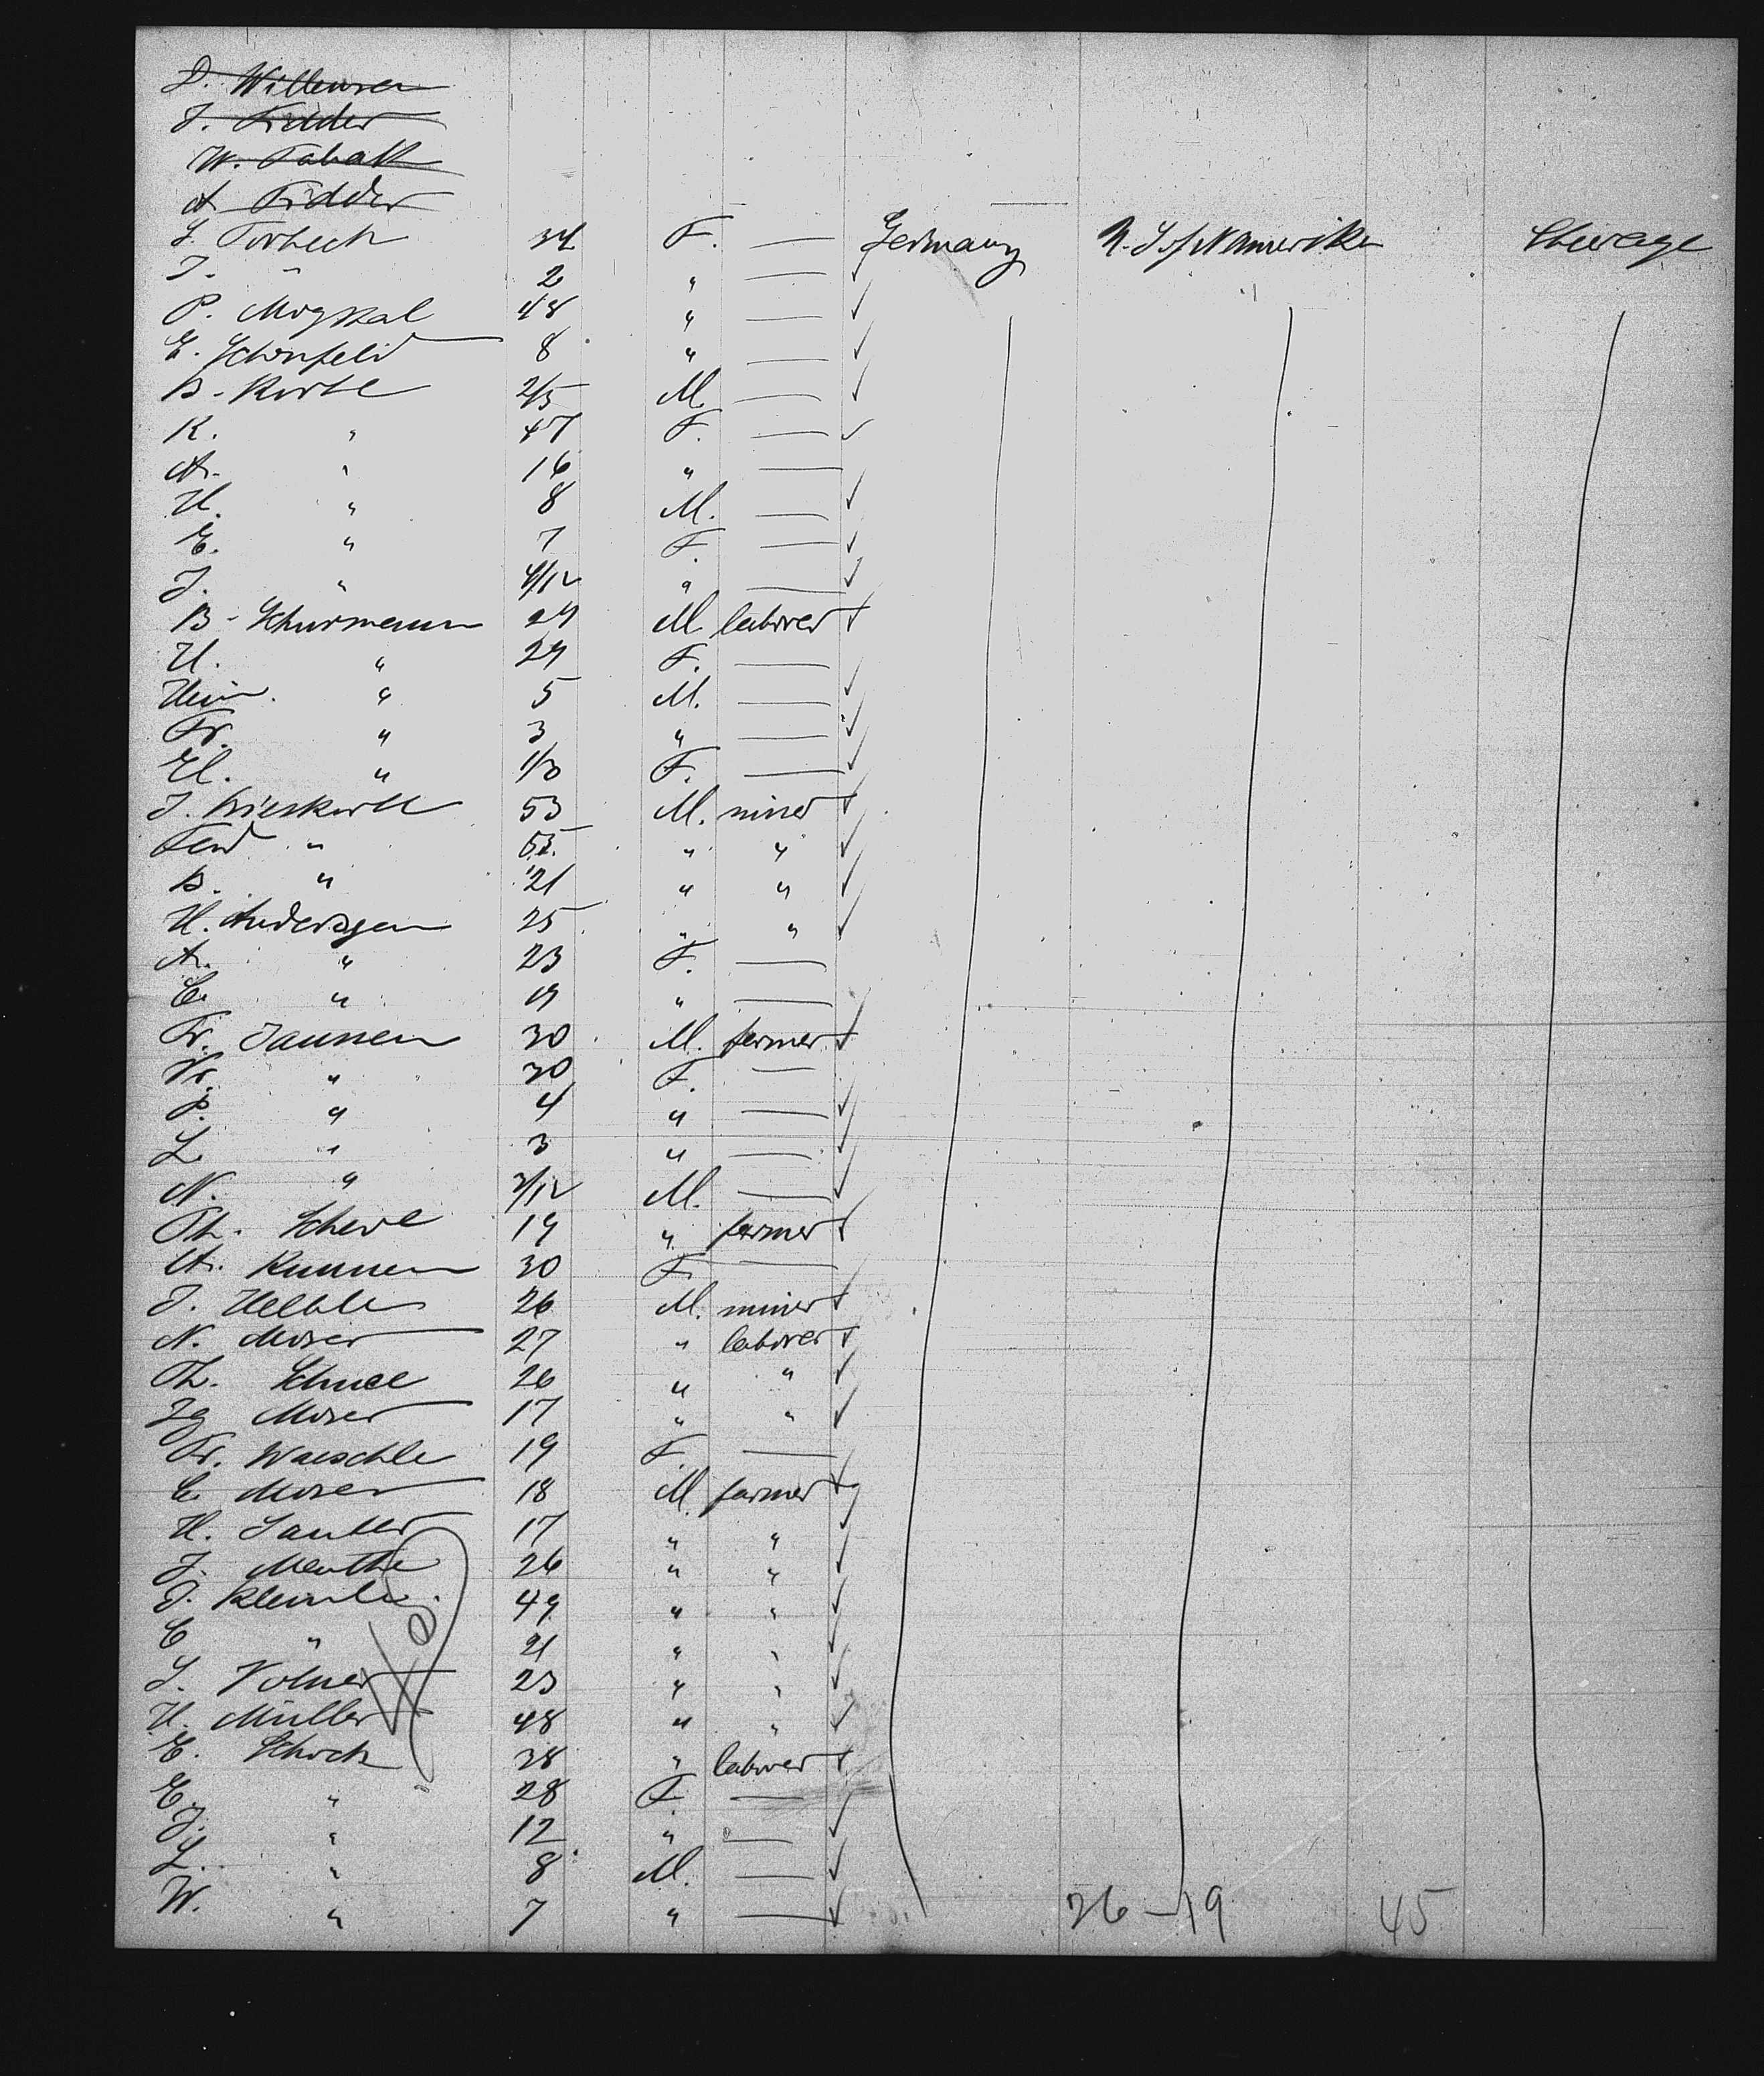 D. Willemsen
J. Fidder
W. Tabak
A. Fidder
G. Torbeck 34 F. — Germany U.S. of N Amerika Steerage
J. " 2 " —
P. Mogkal 48 " —
E. Schonfeld 8 " —
B. Korte M. —
K. " 47 F. —
A. " 16 " —
H. " 8 M. —
E. " 7 F. —
J. " 4/12 " —
B. Schurmann 29 M laborer
H. " 29 F. —
Hein. " 5 M. —
Fr. " 3 " —
El. " F. —
J. 53 M. miner
Ferd " " "
B. " 21 " "
H. 25 " "
A. " 23 F. —
C. " 19 " —
Fr. Jannen 30 M. farmer
Fr. " 30 F. —
P. " 4 " —
L. " 3 " —
N. " 3/12 M. —
Th. Schere 19 " farmer
A. Kunnen 30 F. —
J. Helble 26 M. miner
N. Moser 27 " laborer
Th. 26 " "
Ig Moser 17 " "
Fr. Waeschle 19 F —
C. Moser 18 M. farmer
H. Sauter 17 " "
J. Menthe 26 " "
J. Kleinle 49 " "
C " 21 " "
L. Volmer 23 " "
H. Müller 48 " "
E. Schock 38 " laborer
E. " 28 F. —
J. " 12 " —
L. " 8 M. —
W. " 7 " —
26 – 19 45